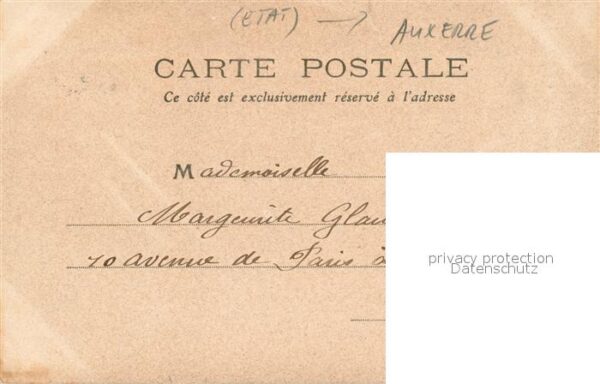 (ETAT) → AUXERRE
CARTE POSTALE
Ce côté est exclusivement réservé à l'adresse
Mademoiselle
Marguerite Glau
70 avenue de Paris à
privacy protection
Datenschutz